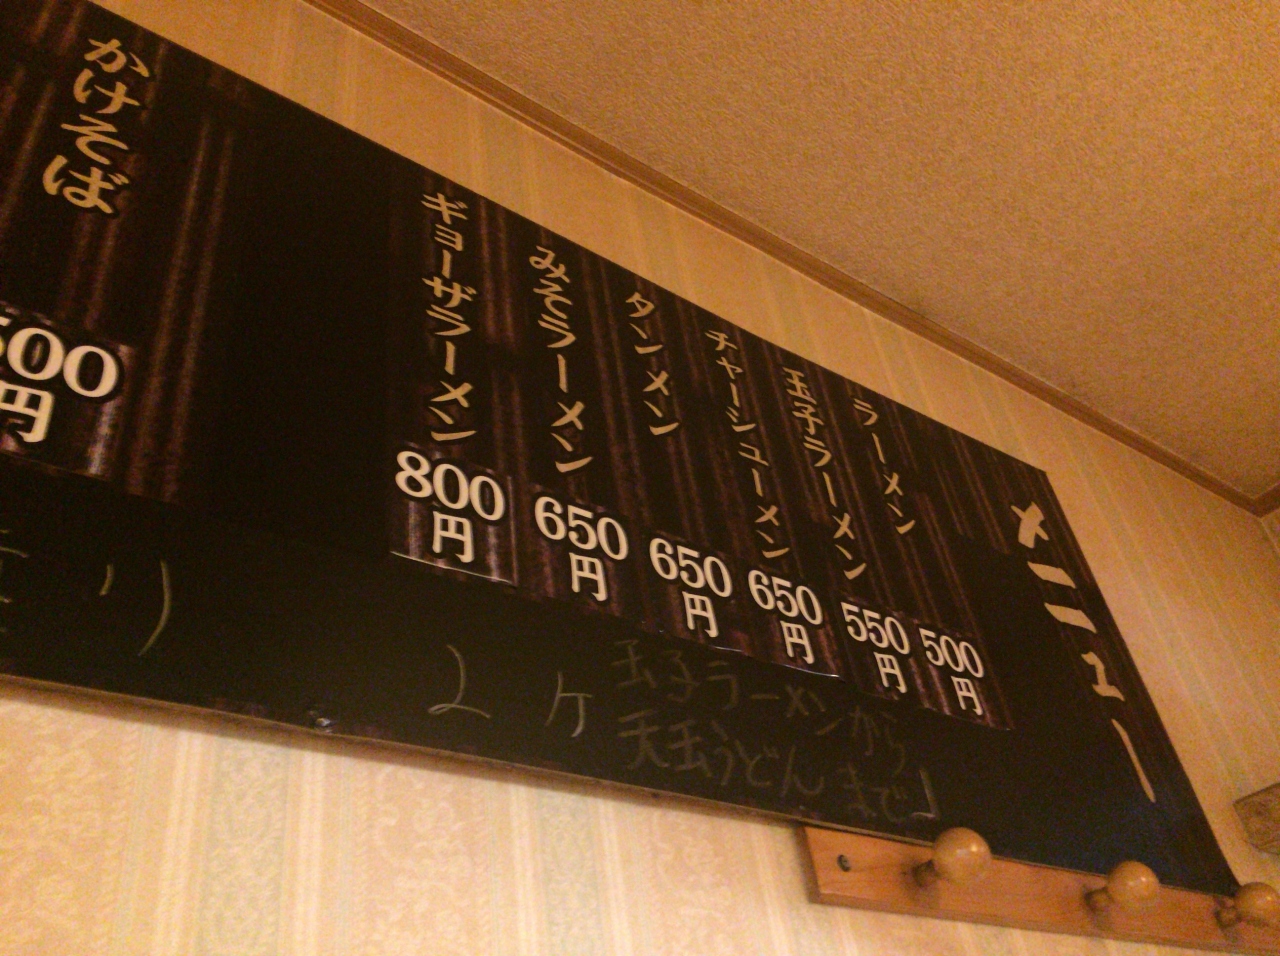 メニュー
ラーメン
500円
玉子ラーメン
550円
チャーシューメン
650円
タンメン
650円
みそラーメン
650円
ギョーザラーメン
800円
かけそば
500円
玉子ラーメンから
天玉うどんまで」
2ヶ